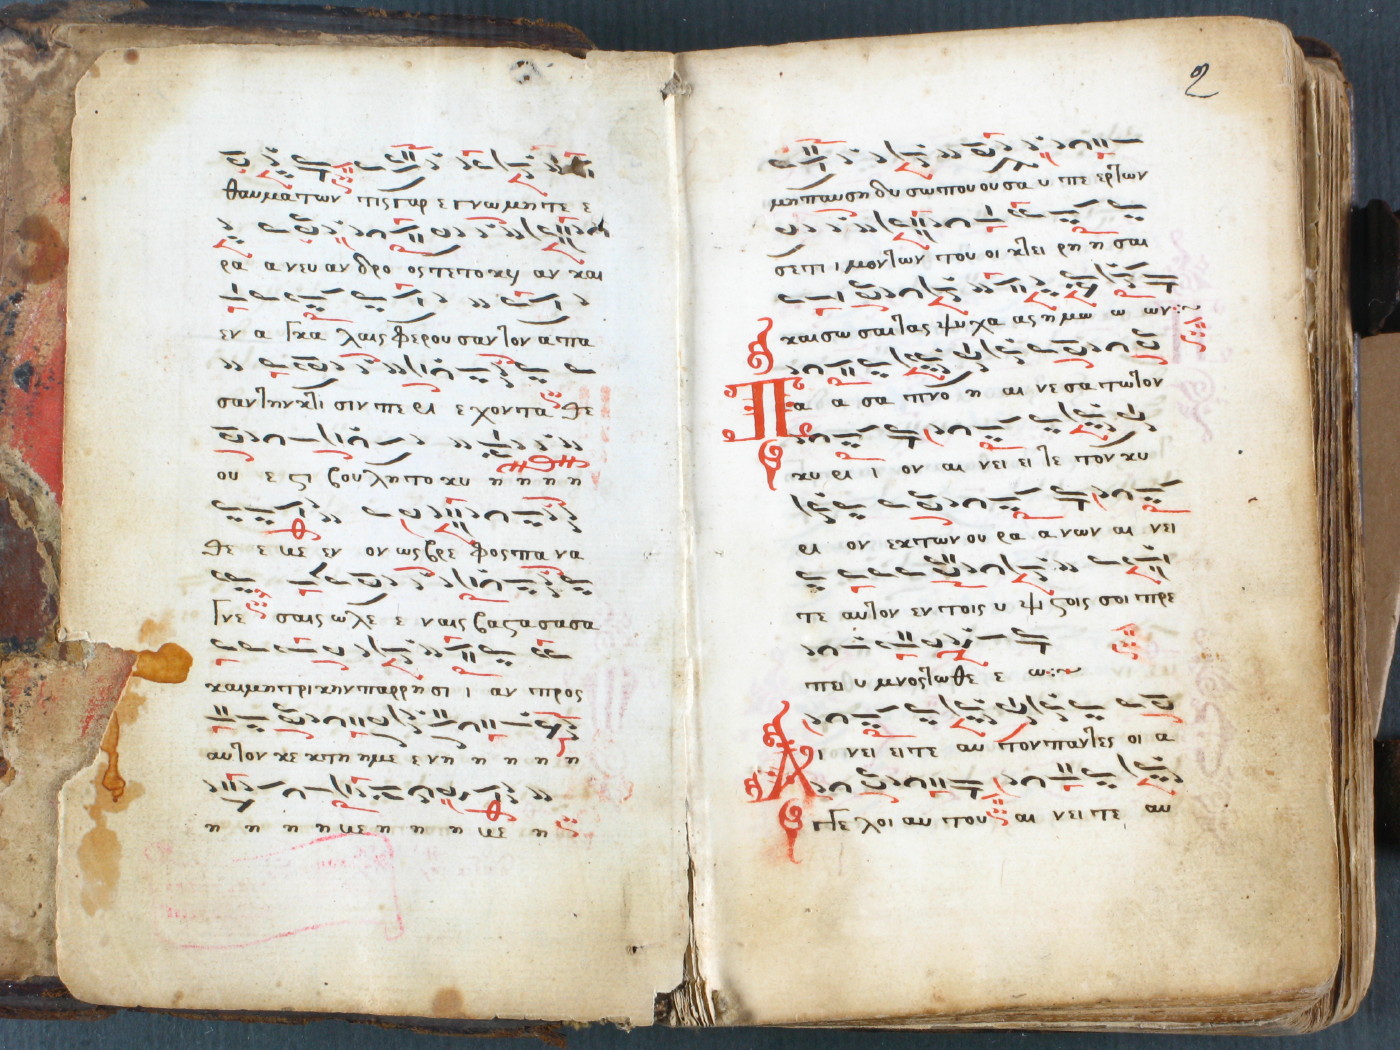 θαυματων τις γαρ ε γνω μη τε ε
ρα α νευ αν δρο ος τε το κυι αν και
εν α γκα λαις φερου σαν τον α πα
σαν την κτι σιν πε ρι ε χον τα θε
ου ε ςι βουλη το κυ η η η η
θε ε με εν ον ως βρε φος πα να
γνε σαις ω λε ε ναις βα ςα σα σα
και μη τρι κην παρρη σι ι αν προς
αυ τον κε κτη ημε ε νη η η η η
η η η η με η η η με η
2
μη παυση δυ σω που ου σα υ πε ερ των
σε τι ι μον των του οι κτει ρη η σαι
και σω σαι τας ψυ χα ας η μω ω ων
Πα α σα πνο η αι νε σα τω τον
κυ ρι ι ον αι νει ει τε τον κυ
ρι ον εκ των ου ρα α νων αι νει
τε αυτον εν τοις υ ψι ςοις σοι πρε
πει υ μνος τω θε ε ω
Αι νει ει τε αυ τον παντες οι α
γγε λοι αυ του αι νει τε αυ